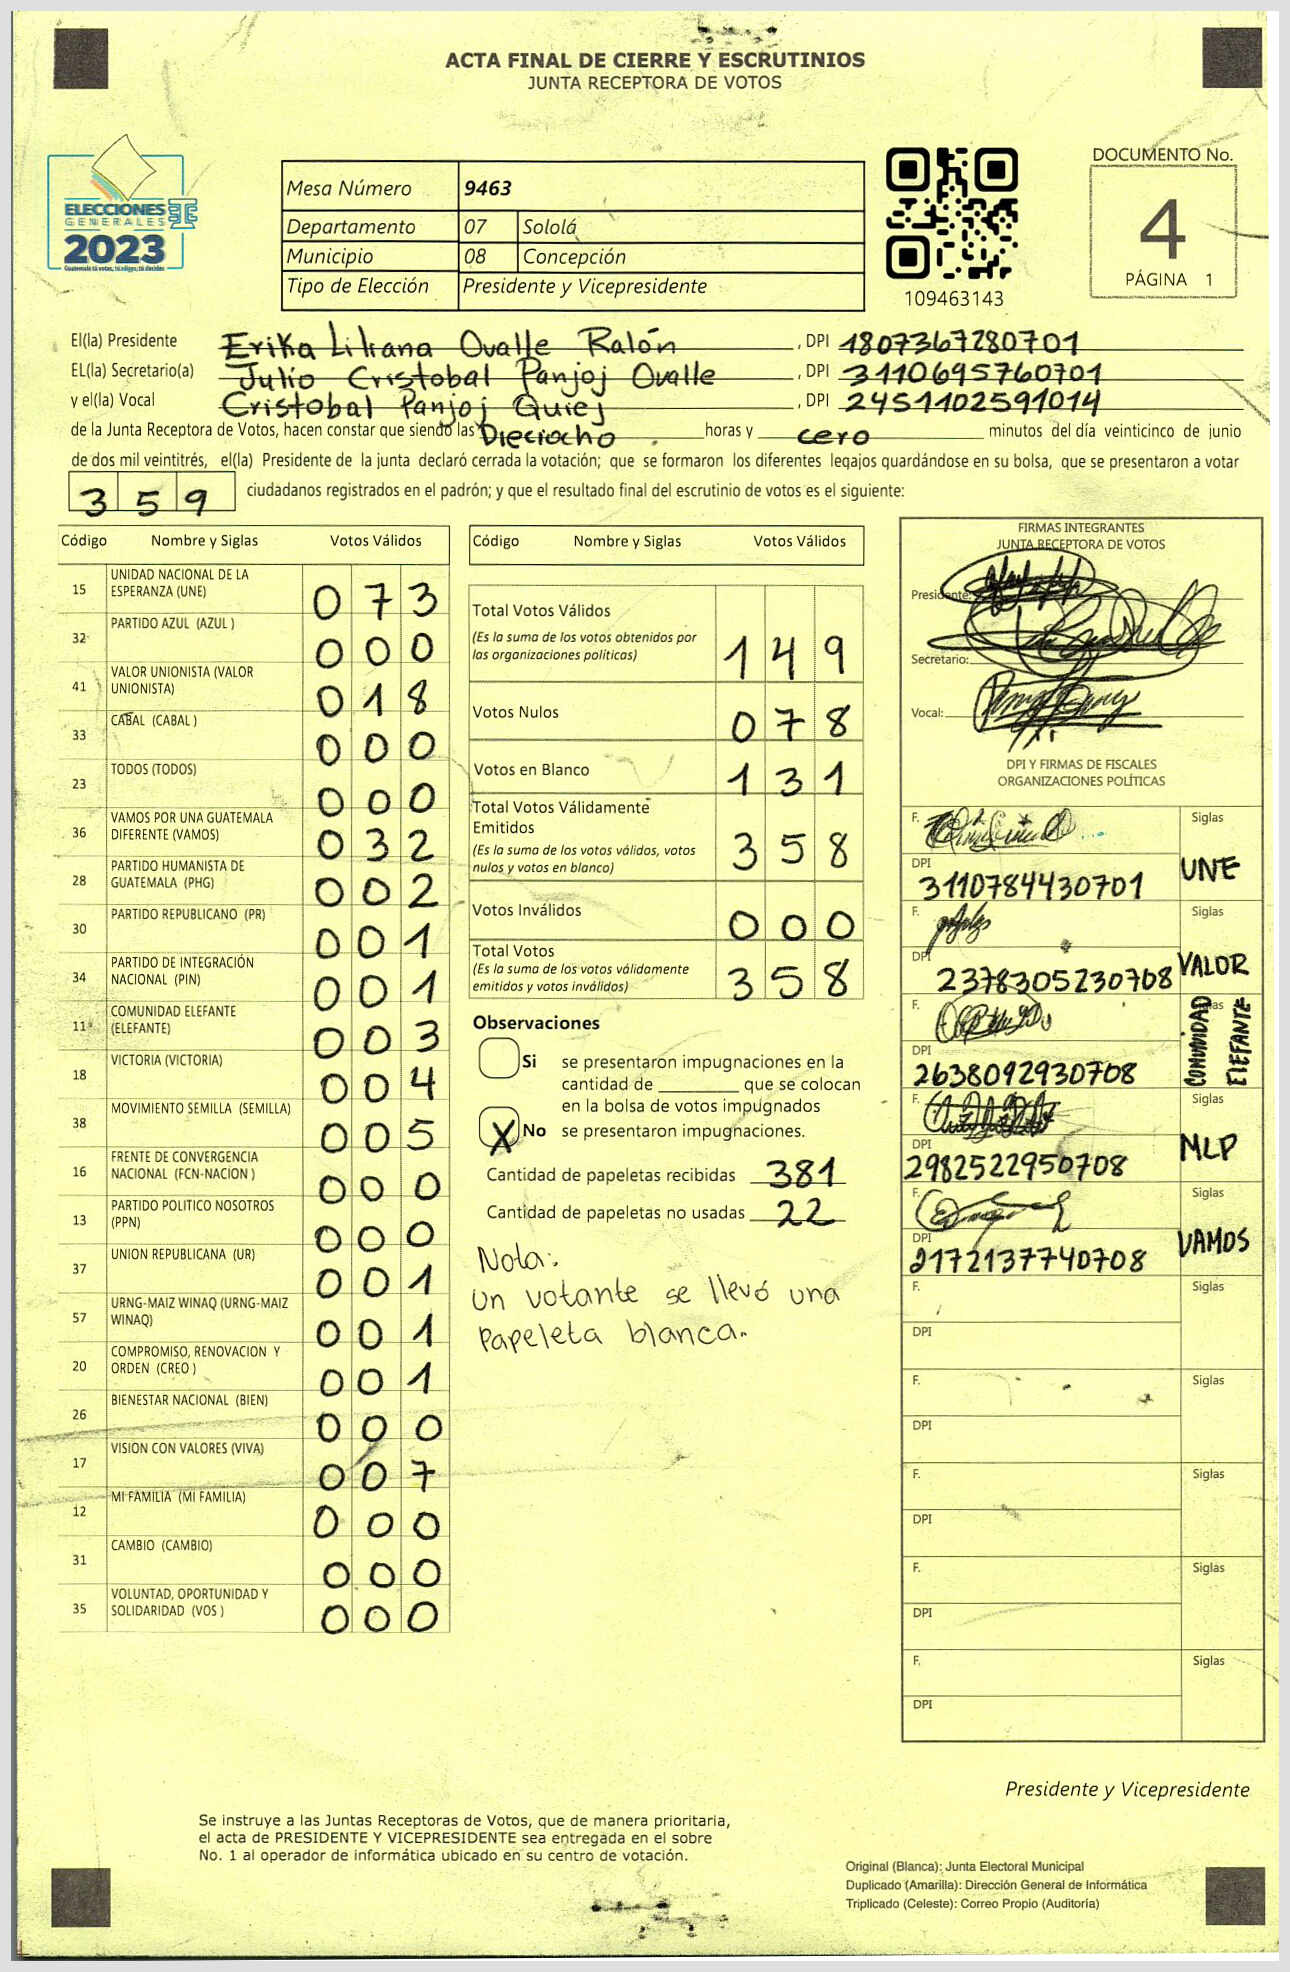 ACTA FINAL DE CIERRE Y ESCRUTINIOS
JUNTA RECEPTORA DE VOTOS
ELECCIONES
GENERALES
2023
Guatemala tú votas, tú eliges, tú decides
Mesa Número 9463
Departamento 07 Sololá
Municipio 08 Concepción
Tipo de Elección Presidente y Vicepresidente
109463143
DOCUMENTO No.
4
PÁGINA 1
El(la) Presidente Erika Liliana Ovalle Ralón , DPI 1807367280701
EL(la) Secretario(a) Julio Cristobal Panjoj Ovalle , DPI 3110695760701
y el(la) Vocal Cristobal Panjoj Quiej , DPI 2451102591014
de la Junta Receptora de Votos, hacen constar que siendo las Dieciocho horas y cero minutos del día veinticinco de junio
de dos mil veintitrés, el(la) Presidente de la junta declaró cerrada la votación; que se formaron los diferentes legajos quardándose en su bolsa, que se presentaron a votar
359 ciudadanos registrados en el padrón; y que el resultado final del escrutinio de votos es el siguiente:
Código Nombre y Siglas Votos Válidos
15 UNIDAD NACIONAL DE LA
ESPERANZA (UNE) 073
32 PARTIDO AZUL (AZUL ) 000
41 VALOR UNIONISTA (VALOR
UNIONISTA) 018
33 CABAL (CABAL ) 000
23 TODOS (TODOS) 000
36 VAMOS POR UNA GUATEMALA
DIFERENTE (VAMOS) 032
28 PARTIDO HUMANISTA DE
GUATEMALA (PHG) 002
30 PARTIDO REPUBLICANO (PR) 001
34 PARTIDO DE INTEGRACIÓN
NACIONAL (PIN) 001
11 COMUNIDAD ELEFANTE
(ELEFANTE) 003
18 VICTORIA (VICTORIA) 004
38 MOVIMIENTO SEMILLA (SEMILLA) 005
16 FRENTE DE CONVERGENCIA
NACIONAL (FCN-NACION ) 000
13 PARTIDO POLITICO NOSOTROS
(PPN) 000
37 UNION REPUBLICANA (UR) 001
57 URNG-MAIZ WINAQ (URNG-MAIZ
WINAQ) 001
20 COMPROMISO, RENOVACION Y
ORDEN (CREO ) 001
26 BIENESTAR NACIONAL (BIEN) 000
17 VISION CON VALORES (VIVA) 007
12 MI FAMILIA (MI FAMILIA) 000
31 CAMBIO (CAMBIO) 000
35 VOLUNTAD, OPORTUNIDAD Y
SOLIDARIDAD (VOS ) 000
Código Nombre y Siglas Votos Válidos
Total Votos Válidos
(Es la suma de los votos obtenidos por
las organizaciones políticas) 149
Votos Nulos 078
Votos en Blanco 131
Total Votos Válidamente
Emitidos
(Es la suma de los votos válidos, votos
nulos y votos en blanco) 358
Votos Inválidos 000
Total Votos
(Es la suma de los votos válidamente
emitidos y votos inválidos) 358
Observaciones
Si se presentaron impugnaciones en la
cantidad de ________ que se colocan
en la bolsa de votos impugnados
X No se presentaron impugnaciones.
Cantidad de papeletas recibidas 381
Cantidad de papeletas no usadas 22
Nota:
un votante se llevó una
papeleta blanca.
FIRMAS INTEGRANTES
JUNTA RECEPTORA DE VOTOS
Presidente:
Secretario:
Vocal:
DPI Y FIRMAS DE FISCALES
ORGANIZACIONES POLÍTICAS
F. Siglas
DPI 3110784430701 UNE
F. Siglas
DPI 2378305230708 VALOR
F. Siglas
DPI 2638092930708 COMUNIDAD ElEFANTE
F. Siglas
DPI 2982522950708 MLP
F. Siglas
DPI 2172137740708 VAMOS
F. Siglas
DPI
F. Siglas
DPI
F. Siglas
DPI
F. Siglas
DPI
F. Siglas
DPI
Presidente y Vicepresidente
Se instruye a las Juntas Receptoras de Votos, que de manera prioritaria,
el acta de PRESIDENTE Y VICEPRESIDENTE sea entregada en el sobre
No. 1 al operador de informática ubicado en su centro de votación.
Original (Blanca): Junta Electoral Municipal
Duplicado (Amarilla): Dirección General de Informática
Triplicado (Celeste): Correo Propio (Auditoría)